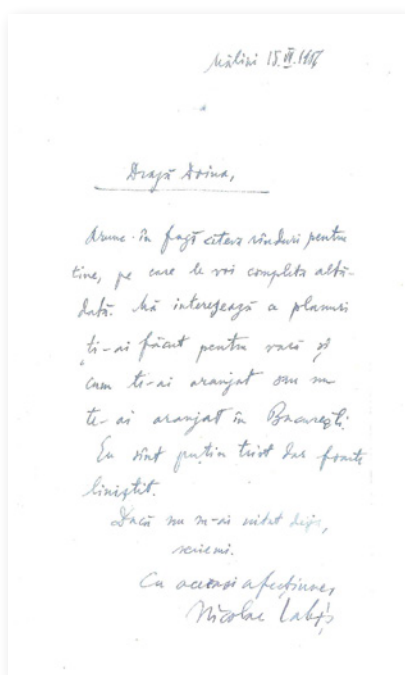 Mălini 15.VI.1956
Dragă Doina,
Arunc în fugă câteva rînduri pentru
tine, pe care le voi completa altă-
dată. Mă interesează ce planuri
ți-ai făcut pentru vară și
cum te-ai aranjat sau nu
te-ai aranjat în București.
Eu sînt puțin trist dar foarte
liniștit.
Dacă nu m-ai uitat deja,
scriemi.
Cu aceeași afecțiune,
Nicolae Labiș